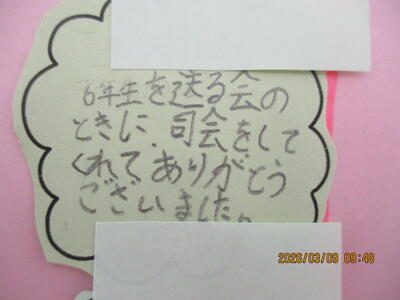 6年生を送る会の
ときに、司会をして
くれてありがとう
ございました。
2026/03/09 09:40